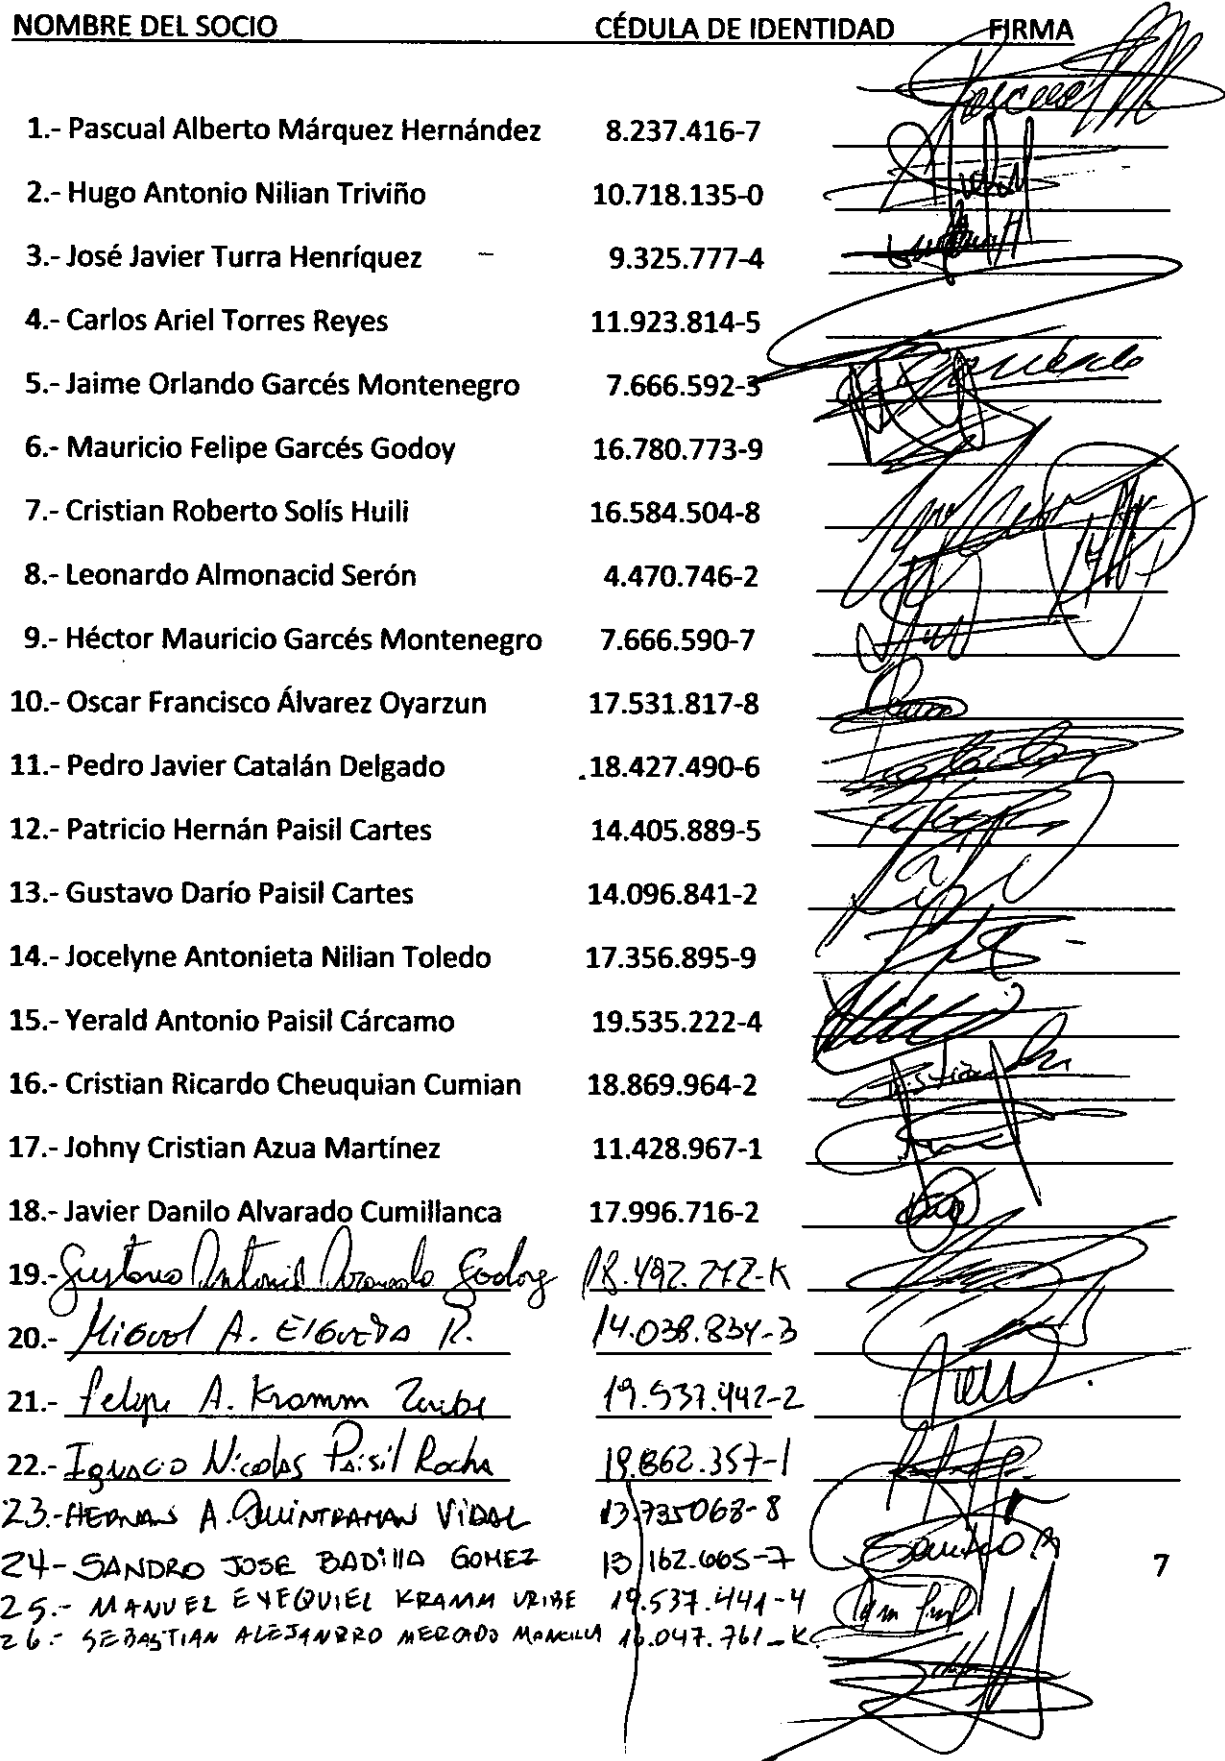 NOMBRE DEL SOCIO CÉDULA DE IDENTIDAD FIRMA
1.- Pascual Alberto Márquez Hernández 8.237.416-7
2.- Hugo Antonio Nilian Triviño 10.718.135-0
3.- José Javier Turra Henríquez 9.325.777-4
4.- Carlos Ariel Torres Reyes 11.923.814-5
5.- Jaime Orlando Garcés Montenegro 7.666.592-3
6.- Mauricio Felipe Garcés Godoy 16.780.773-9
7.- Cristian Roberto Solís Huili 16.584.504-8
8.- Leonardo Almonacid Serón 4.470.746-2
9.- Héctor Mauricio Garcés Montenegro 7.666.590-7
10.- Oscar Francisco Álvarez Oyarzun 17.531.817-8
11.- Pedro Javier Catalán Delgado 18.427.490-6
12.- Patricio Hernán Paisil Cartes 14.405.889-5
13.- Gustavo Darío Paisil Cartes 14.096.841-2
14.- Jocelyne Antonieta Nilian Toledo 17.356.895-9
15.- Yerald Antonio Paisil Cárcamo 19.535.222-4
16.- Cristian Ricardo Cheuquian Cumian 18.869.964-2
17.- Johny Cristian Azua Martínez 11.428.967-1
18.- Javier Danilo Alvarado Cumillanca 17.996.716-2
19.- Gustavo Antonio Godoy
20.- Miguel A. Elgueda R. 14.038.834-3
21.- Felipe A. Kramm 19.537.442-2
22.- Ignacio Nicolas Paisil Rocha 19.862.357-1
23.- HERNAN A. QUINTRAMAN VIDAL 13.735063-8
24- SANDRO JOSE BADILLA GOMEZ 13.162.665-7
7
25.- MANUEL EXEQUIEL KRAMM URIBE 19.537.441-4
26.- SEBASTIAN ALEJANDRO MERCADO MANCILLA 16.047.761-K